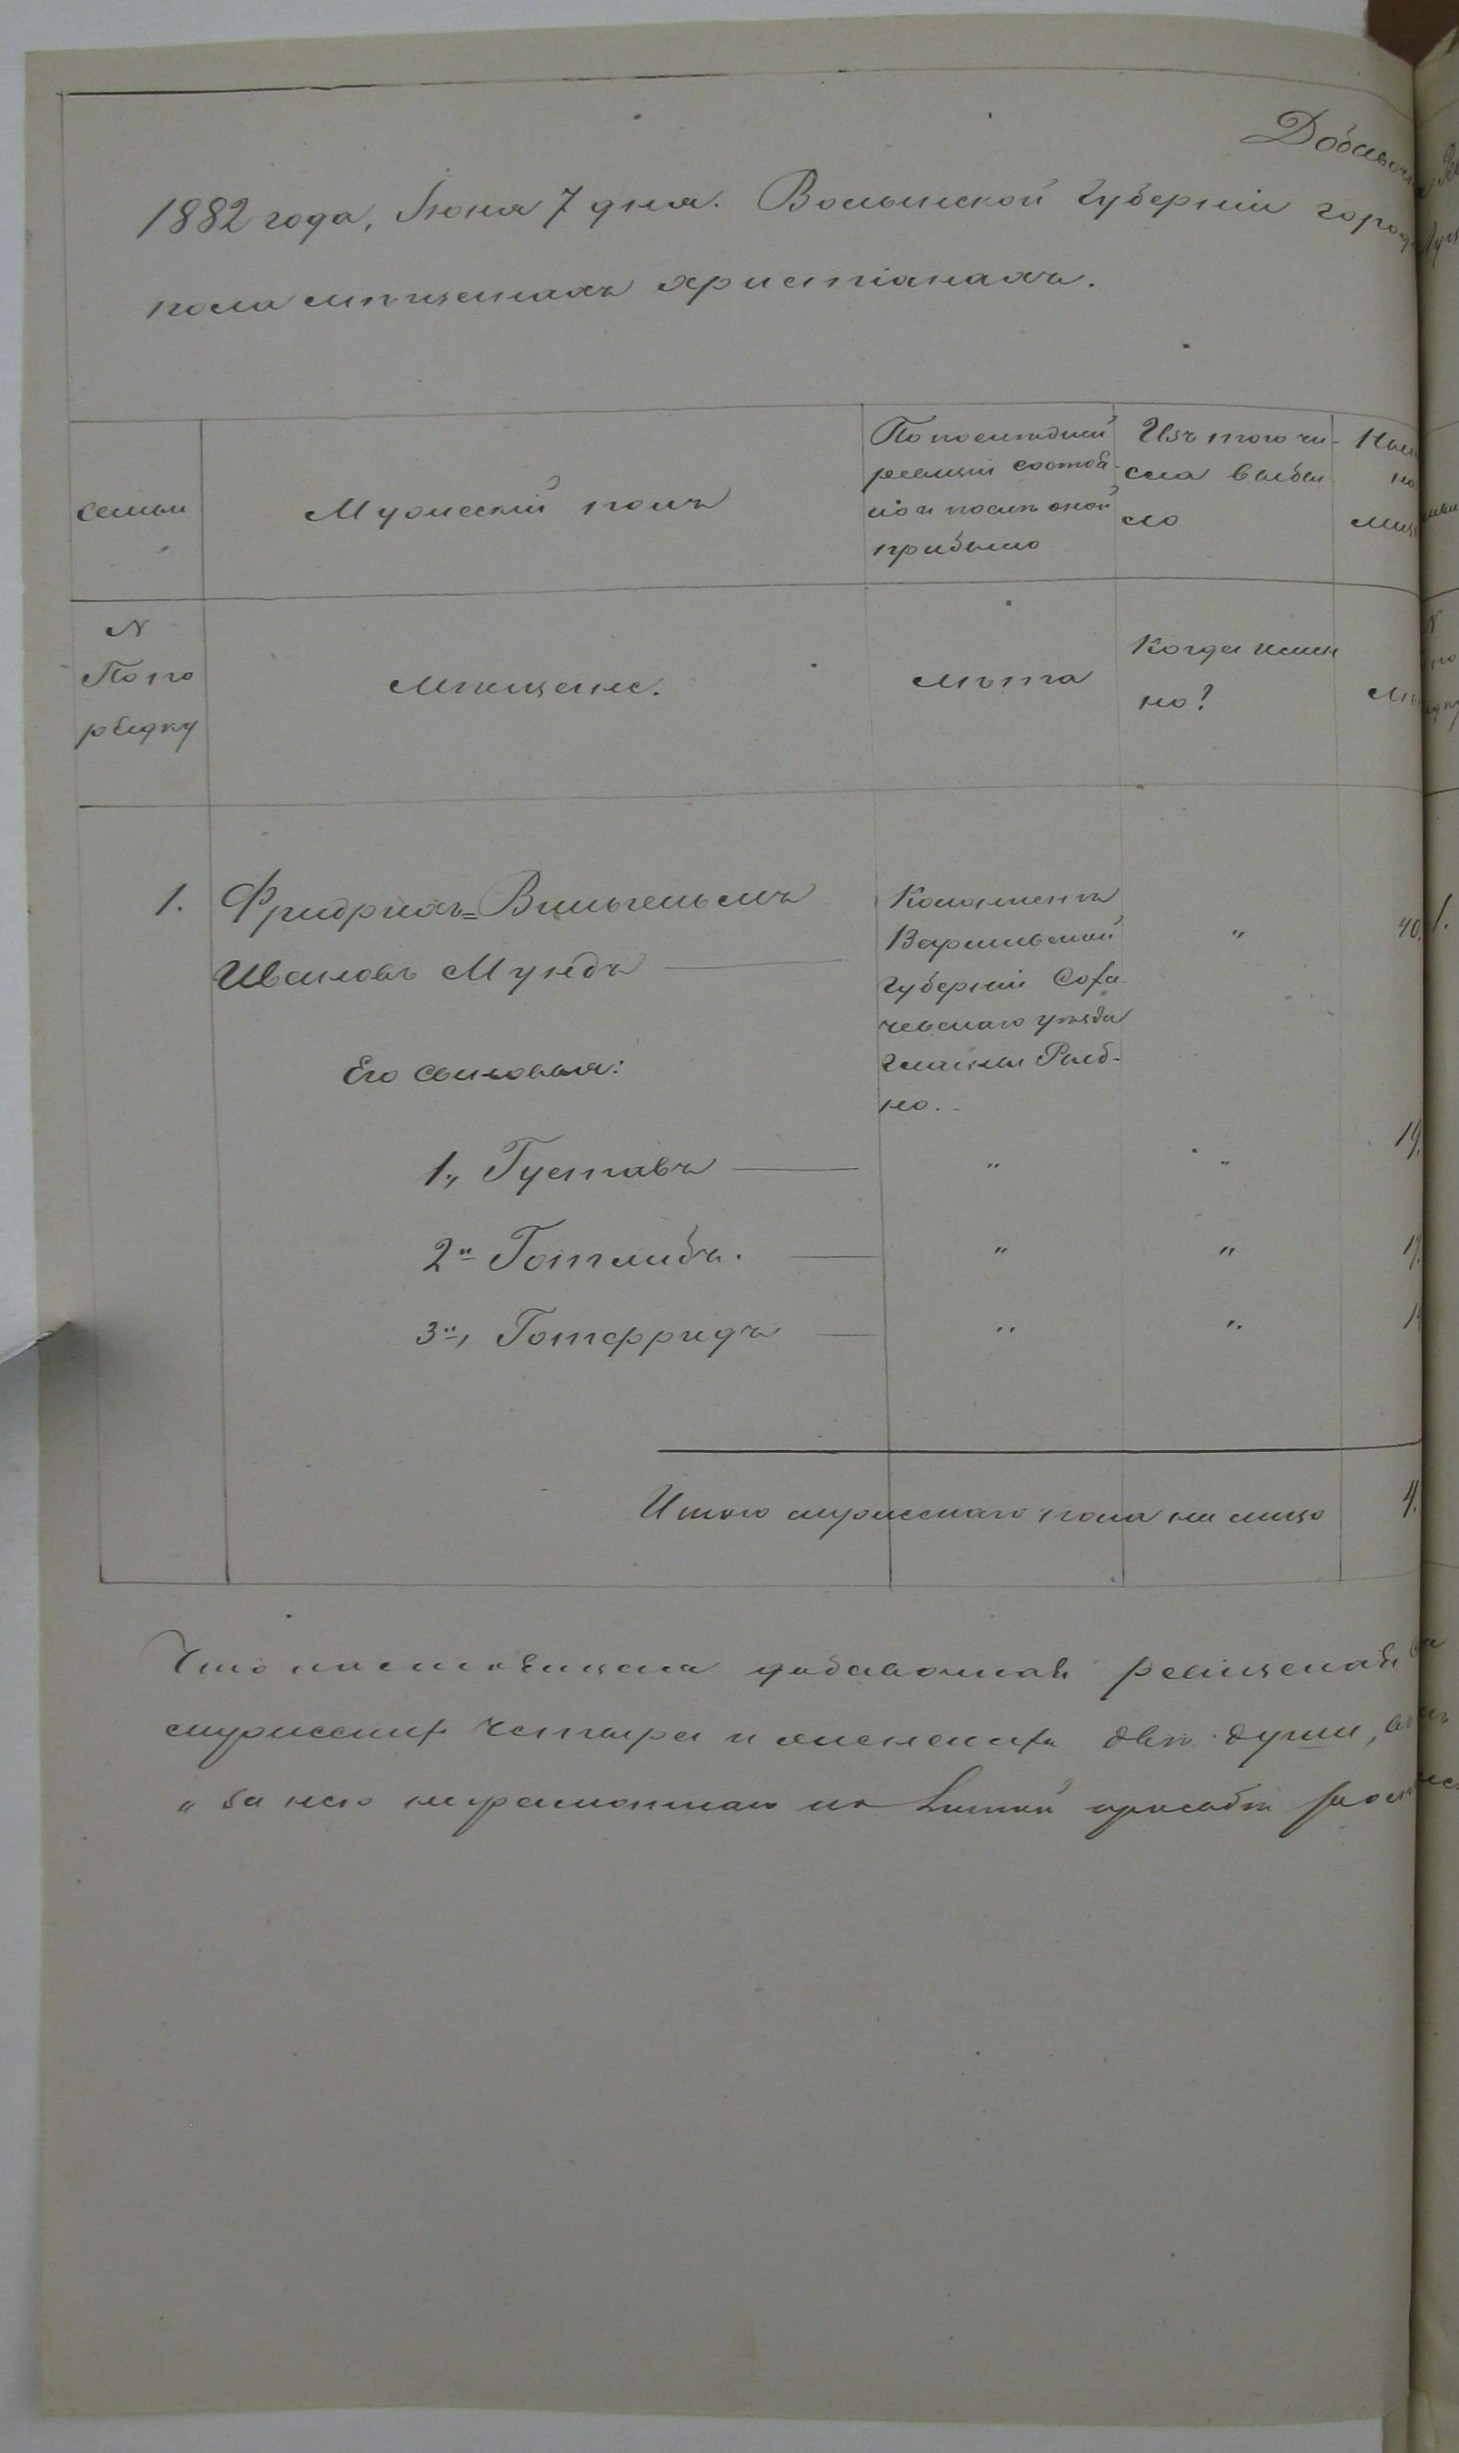 Добавочн
1882 года, Іюня 7 дня. Волынской Губерніи город
пола мѣщанахъ христіанахъ.
семьи
Мужескій полъ
По последней
ревизіи состоя-
ло и послѣ оной
прибыло
Изъ того чи-
сла выбы
ло
Нын
но
лиц
N
По по
рядку
Мѣщане.
Лѣта
Когда имен
но?
Лѣ
1. Фридрихъ=Вильгельмъ
Ивановъ Мундъ
Колонистъ
Варшавской
Губерніи Соха
чевскаго уѣзда
Гмины Рыб-
но..
"
40.
Его сыновья:
1., Густавъ " " 19.
2" Готлибъ. " " 17.
3", Готфридъ " "
Итого мужескаго пола на лицо 4.
Что настоящая добавочная
мужескихъ четыре и женскихъ двѣ души,